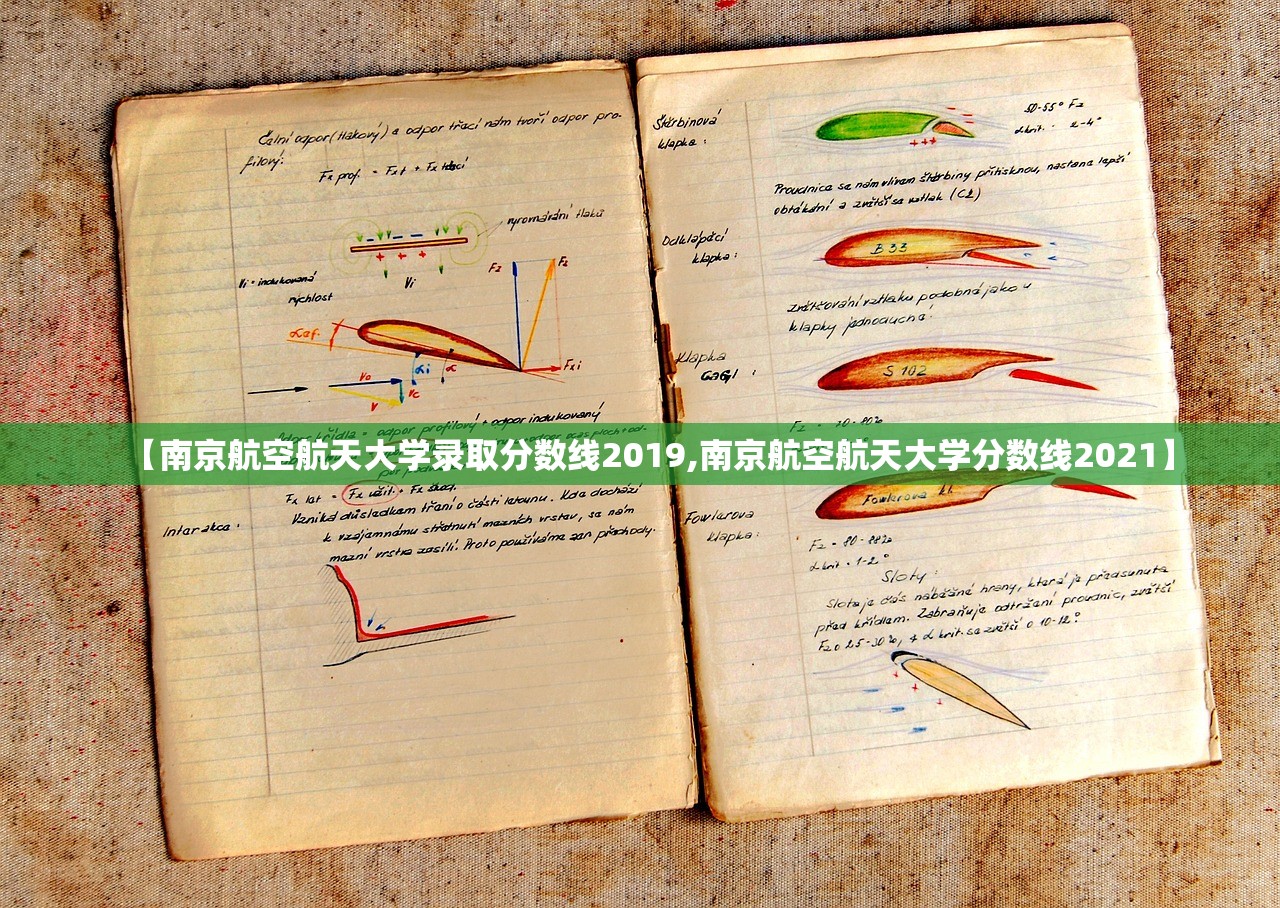 Čelní odpor (tlakový) a odpor třecí nám tvoří odpor pro-
filový:
Fx prof. = Fxt + Fx třecí
vyrovnávání tlaků
Vi
Vi = indukovaná
rychlost
Fz
Fz
αef.
αi
α
Fxi
vo
vc
v
odpor profilový + odpor indukovaný
【南京航空航天大学录取分数线2019,南京航空航天大学分数线2021】
Fx let = Fx užit. + Fx škod.
Interakce:
Vzniká důsledkem tření o části letounu. Kde dochází
k vzájemnému střetnutí mezních vrstev, se nám
mezní vrstva zesílí. Proto používáme zan přechody.
Štěrbinová
klapka:
50-55° Fz
αkrit. 2-4°
Proudnice se nám vlivem štěrbiny přitisknou, nastane lepší
obtékání a zvětší se vztlak (CZ)
Odklápěcí
klapka:
B 33
zvětšování vztlaku podobné jako u
klapky jednoduché.
Klapka
GaGl:
S 102
Fowlerova kl.
Fowlerova
klapka:
Fz = 80-88%
αkrit = 1-2°
Sloty:
Slot je část náběžné hrany, která je předsunuta
před křídlem. Zabraňuje odtržení proudnic, zvětší
Fz o 25-30%, αkrit. se zvětší o 10-12°